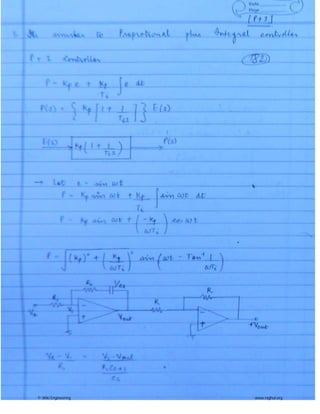 Date
Page
[P+I]
Its number to Proprotional plus Integral controller
P + I controller
P = Kp e + Kp/Ti ∫ e dt
P(s) = { Kp [ 1 + 1/TiS ] } E(s)
E(s) Kp ( 1 + 1/TiS ) P(s)
→ Let e = sin wt
P = Kp sin wt + Kp/Ti ∫ sin wt dt
P = Kp sin wt + ( -Kp/wTi ) cos wt
P = √( (Kp)² + ( Kp/wTi )² ) sin ( wt - Tan⁻¹ 1/wTi )
R₂
R₁ V₁ Vout R R +Vout
Ve - V₁ / R₁ = V₁ - Vout / R₂Cs+1 / Cs
© Wiki Engineering www.raghul.org